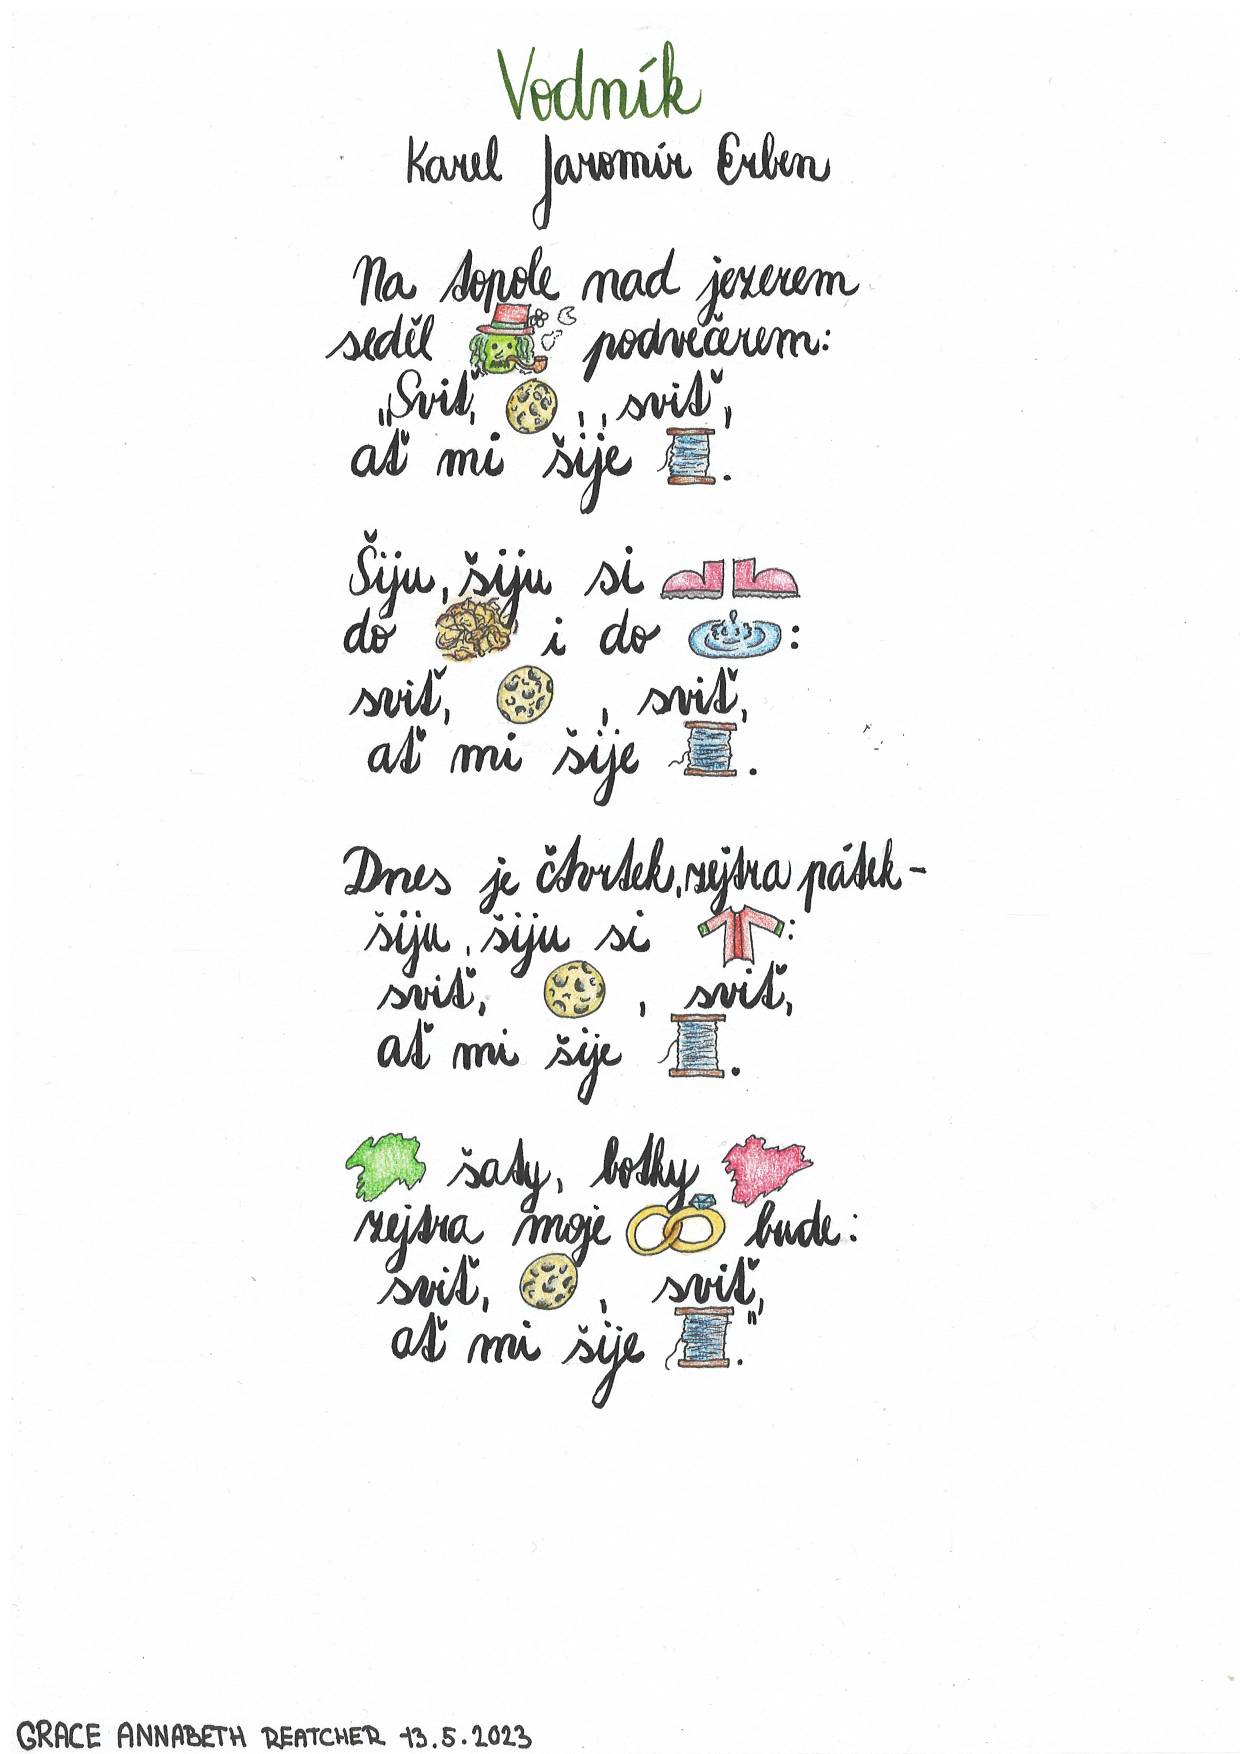 Vodník
Karel Jaromír Erben
Na topole nad jezerem
seděl podvečerem:
„Sviť, , sviť,
ať mi šije .
Šiju, šiju si
do i do :
sviť, , sviť,
ať mi šije .
Dnes je čtvrtek, zejtra pátek -
šiju, šiju si :
sviť, , sviť,
ať mi šije .
šaty, botky
zejtra moje bude:
sviť, , sviť,
ať mi šije ."
GRACE ANNABETH REATCHER 13.5.2023